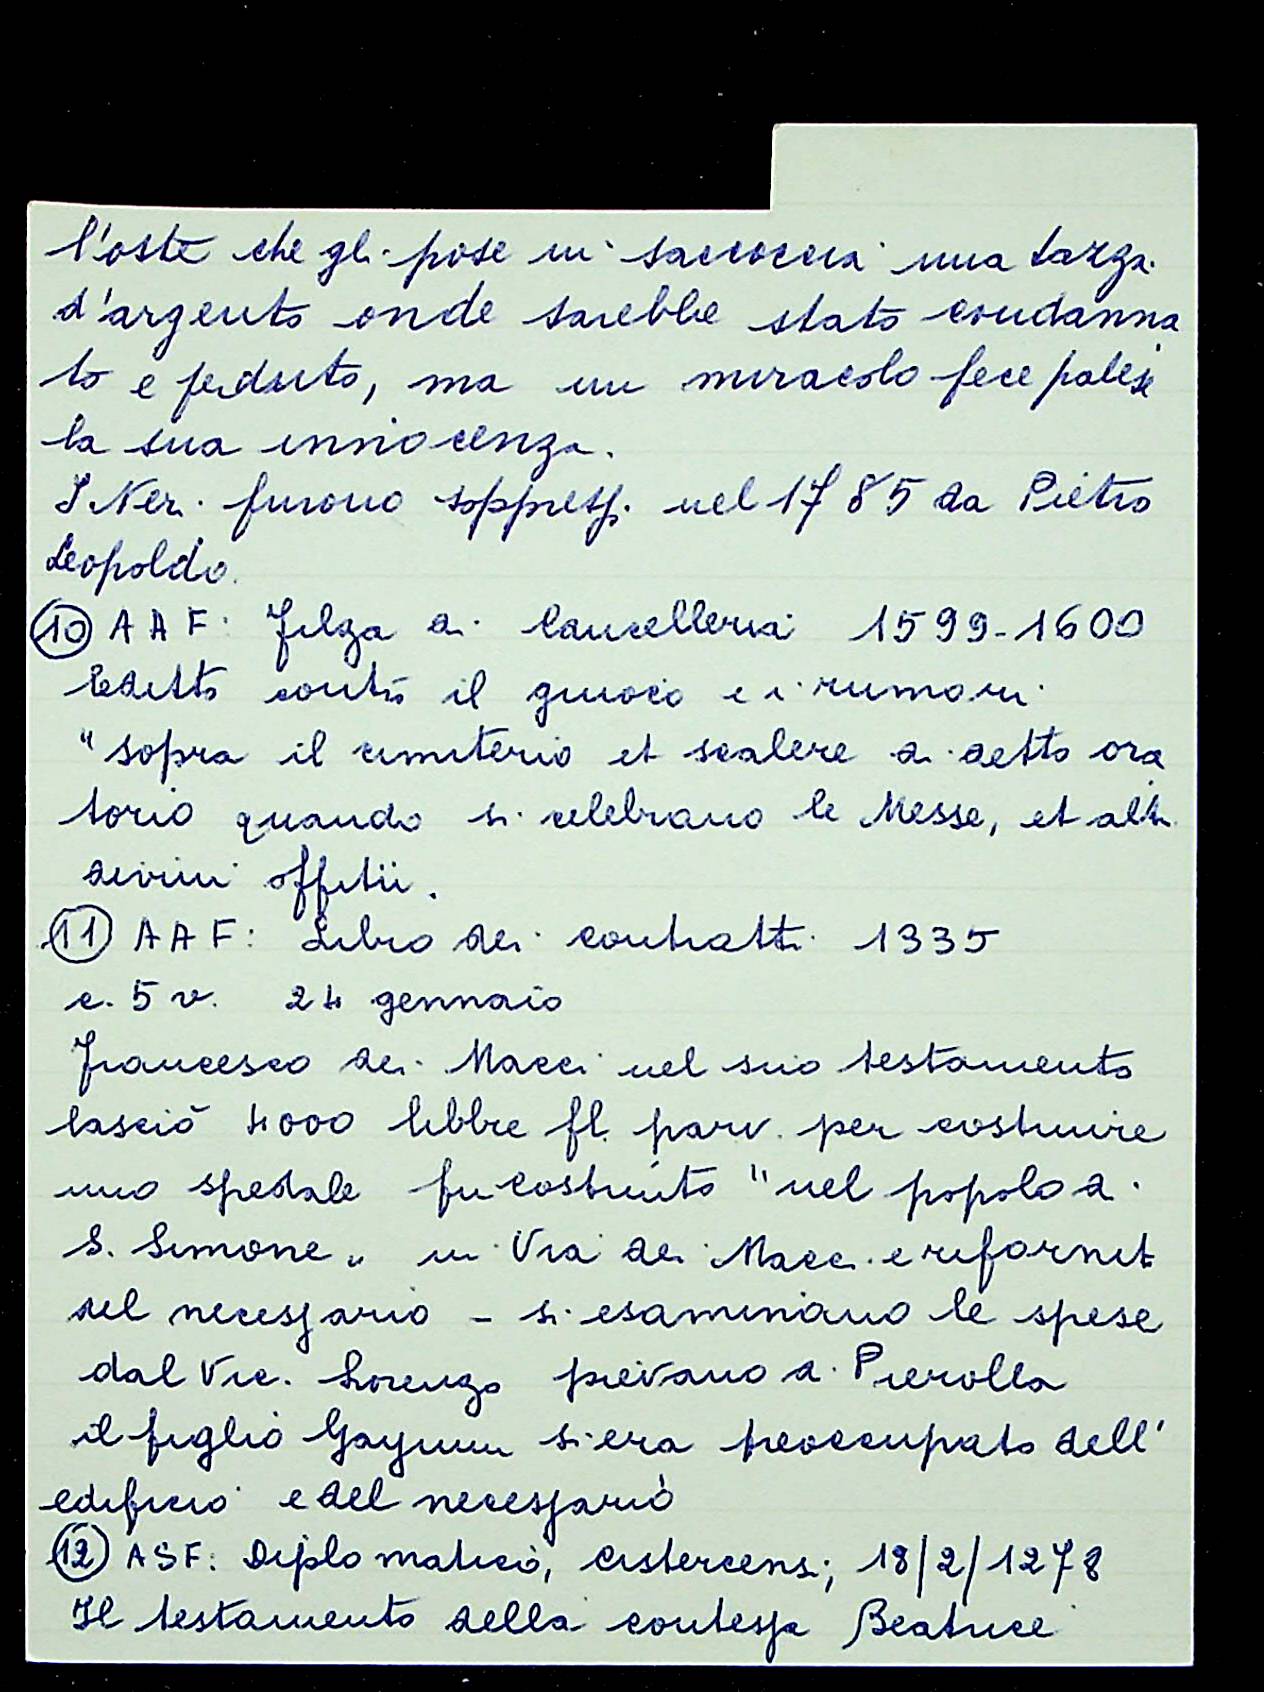 l'oste che gli pose in saccoccia una tazza
d'argento onde sarebbe stato condanna
to e perduto, ma un miracolo fece palese
la sua innocenza.
I Ner. furono soppressi nel 1785 da Pietro
Leopoldo.
10 AAF: Filza di Cancelleria 1599-1600
contro il giuoco e i rumori
"sopra il cimiterio et scalere di detto ora
torio quando si celebrano le Messe, et altri
divini offitii.
11 AAF: Libro dei contratti 1335
c. 5 v. 24 gennaio
Francesco dei Macci nel suo testamento
lasciò 4000 libbre fl. parv. per costruire
uno spedale fu costruito "nel popolo di
S. Simone" in Via dei Macci e rifornit
del necessario - si esaminano le spese
dal Vic. Lorenzo pievano di
il figlio si era preoccupato dell'
edificio e del necessario
12 ASF: Diplomatico, Cistercensi; 18/2/1278
Il testamento della contessa Beatrice